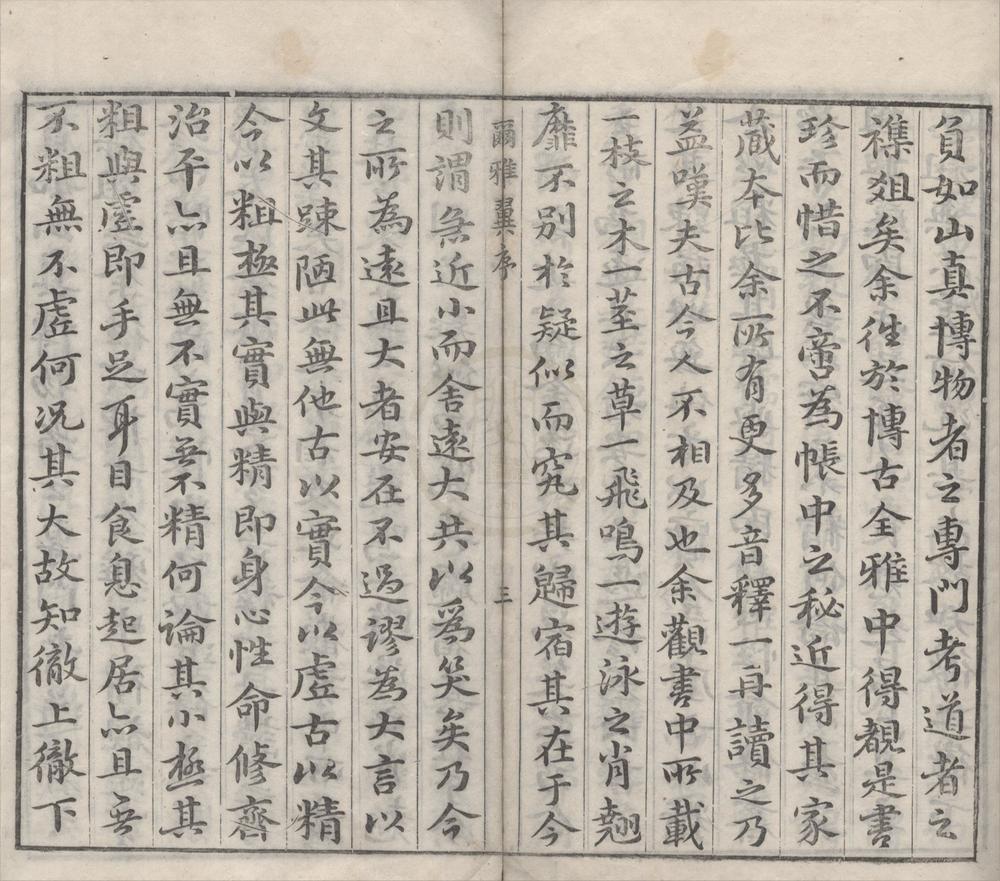 負如山真博物者之專門考道者之
襍俎矣余徃於博古全雅中得覩是書
珍而惜之不啻為帳中之秘近得其家
藏本比余所有更多音釋一再讀之乃
益嘆夫古今人不相及也余觀書中所載
一枝之木一莖之草一飛鳴一遊泳之肖翹
靡不別於疑似而究其歸宿其在于今
爾雅翼序 三
則謂希近小而舍遠大共以為笑矣乃今
之所為遠且大者安在不過謬為大言以
文其踈陋此無他古以實今以虛古以精
今以粗極其實與精即身心性命修齊
治平亦且無不實無不精何論其小極其
粗與虛即手足耳目食息起居亦且無
不粗無不虛何況其大故知徹上徹下